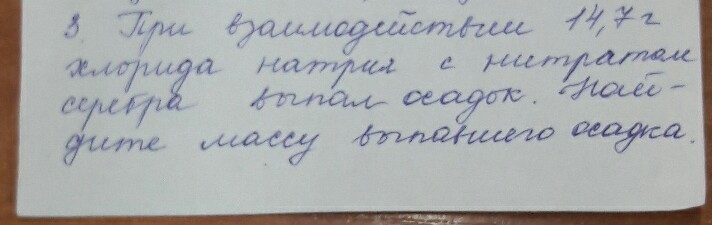 3. При взаимодействии 14,7 г
хлорида натрия с нитратом
серебра выпал осадок. Най-
дите массу выпавшего осадка.